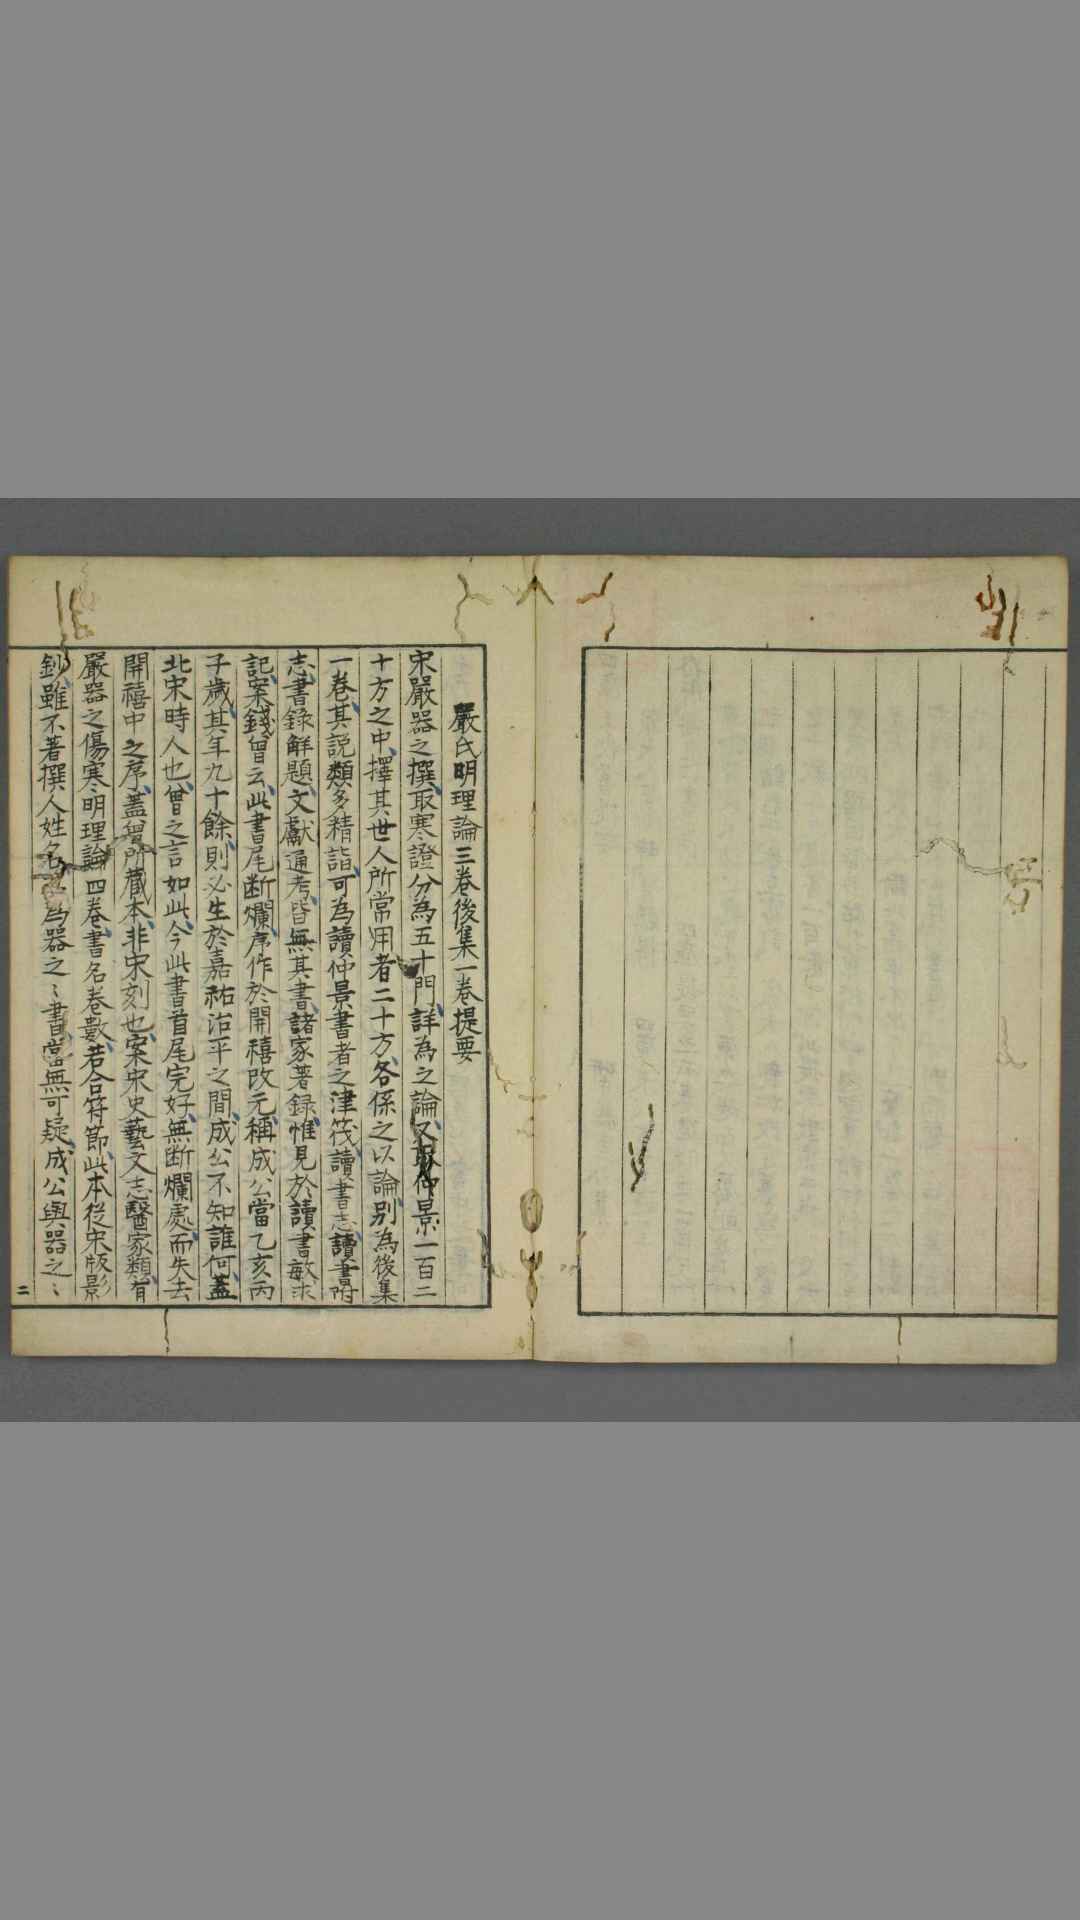 嚴氏明理論三卷後集一卷提要
宋嚴器之撰取寒證分為五十門詳為之論又取仲景一百二
十方之中擇其世人所常用者二十方各係之以論別為後集
一卷其説類多精詣可為讀仲景書者之津筏讀書志讀書附
志書錄解題文獻通考皆無其書諸家著録惟見於讀書敏求
記案錢曾云此書尾断爛序作於開禧改元稱成公當乙亥丙
子歲其年九十餘則必生於嘉祐治平之間成公不知誰何蓋
北宋時人也曾之言如此今此書首尾完好無断爛處而失去
開禧中之序蓋曾所藏本非宋刻也案宋史藝文志醫家類有
嚴器之傷寒明理論四卷書名卷數若合符節此本從宋版影
鈔雖不著撰人姓名為器之〻書當無可疑成公與器之〻
二